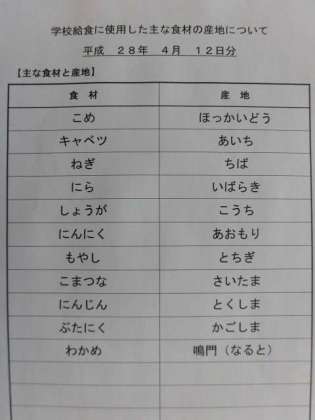 学校給食に使用した主な食材の産地について
平成　２８年　４月　１２日分
【主な食材と産地】
食　材　産　地
こめ　ほっかいどう
キャベツ　あいち
ねぎ　ちば
にら　いばらき
しょうが　こうち
にんにく　あおもり
もやし　とちぎ
こまつな　さいたま
にんじん　とくしま
ぶたにく　かごしま
わかめ　鳴門（なると）